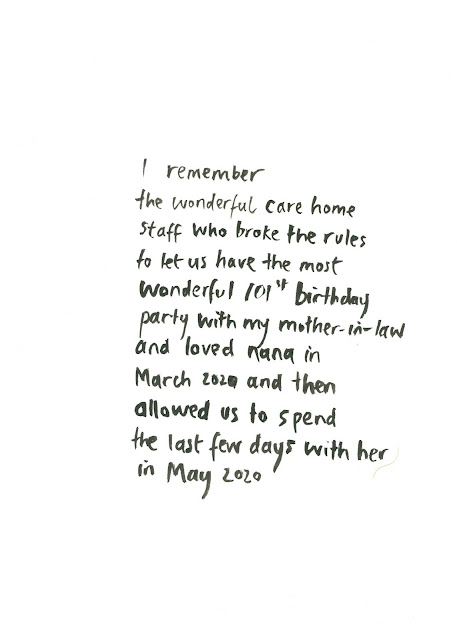 I remember
the wonderful care home
staff who broke the rules
to let us have the most
wonderful 101st birthday
party with my mother-in-law
and loved nana in
March 2020 and then
allowed us to spend
the last few days with her
in May 2020